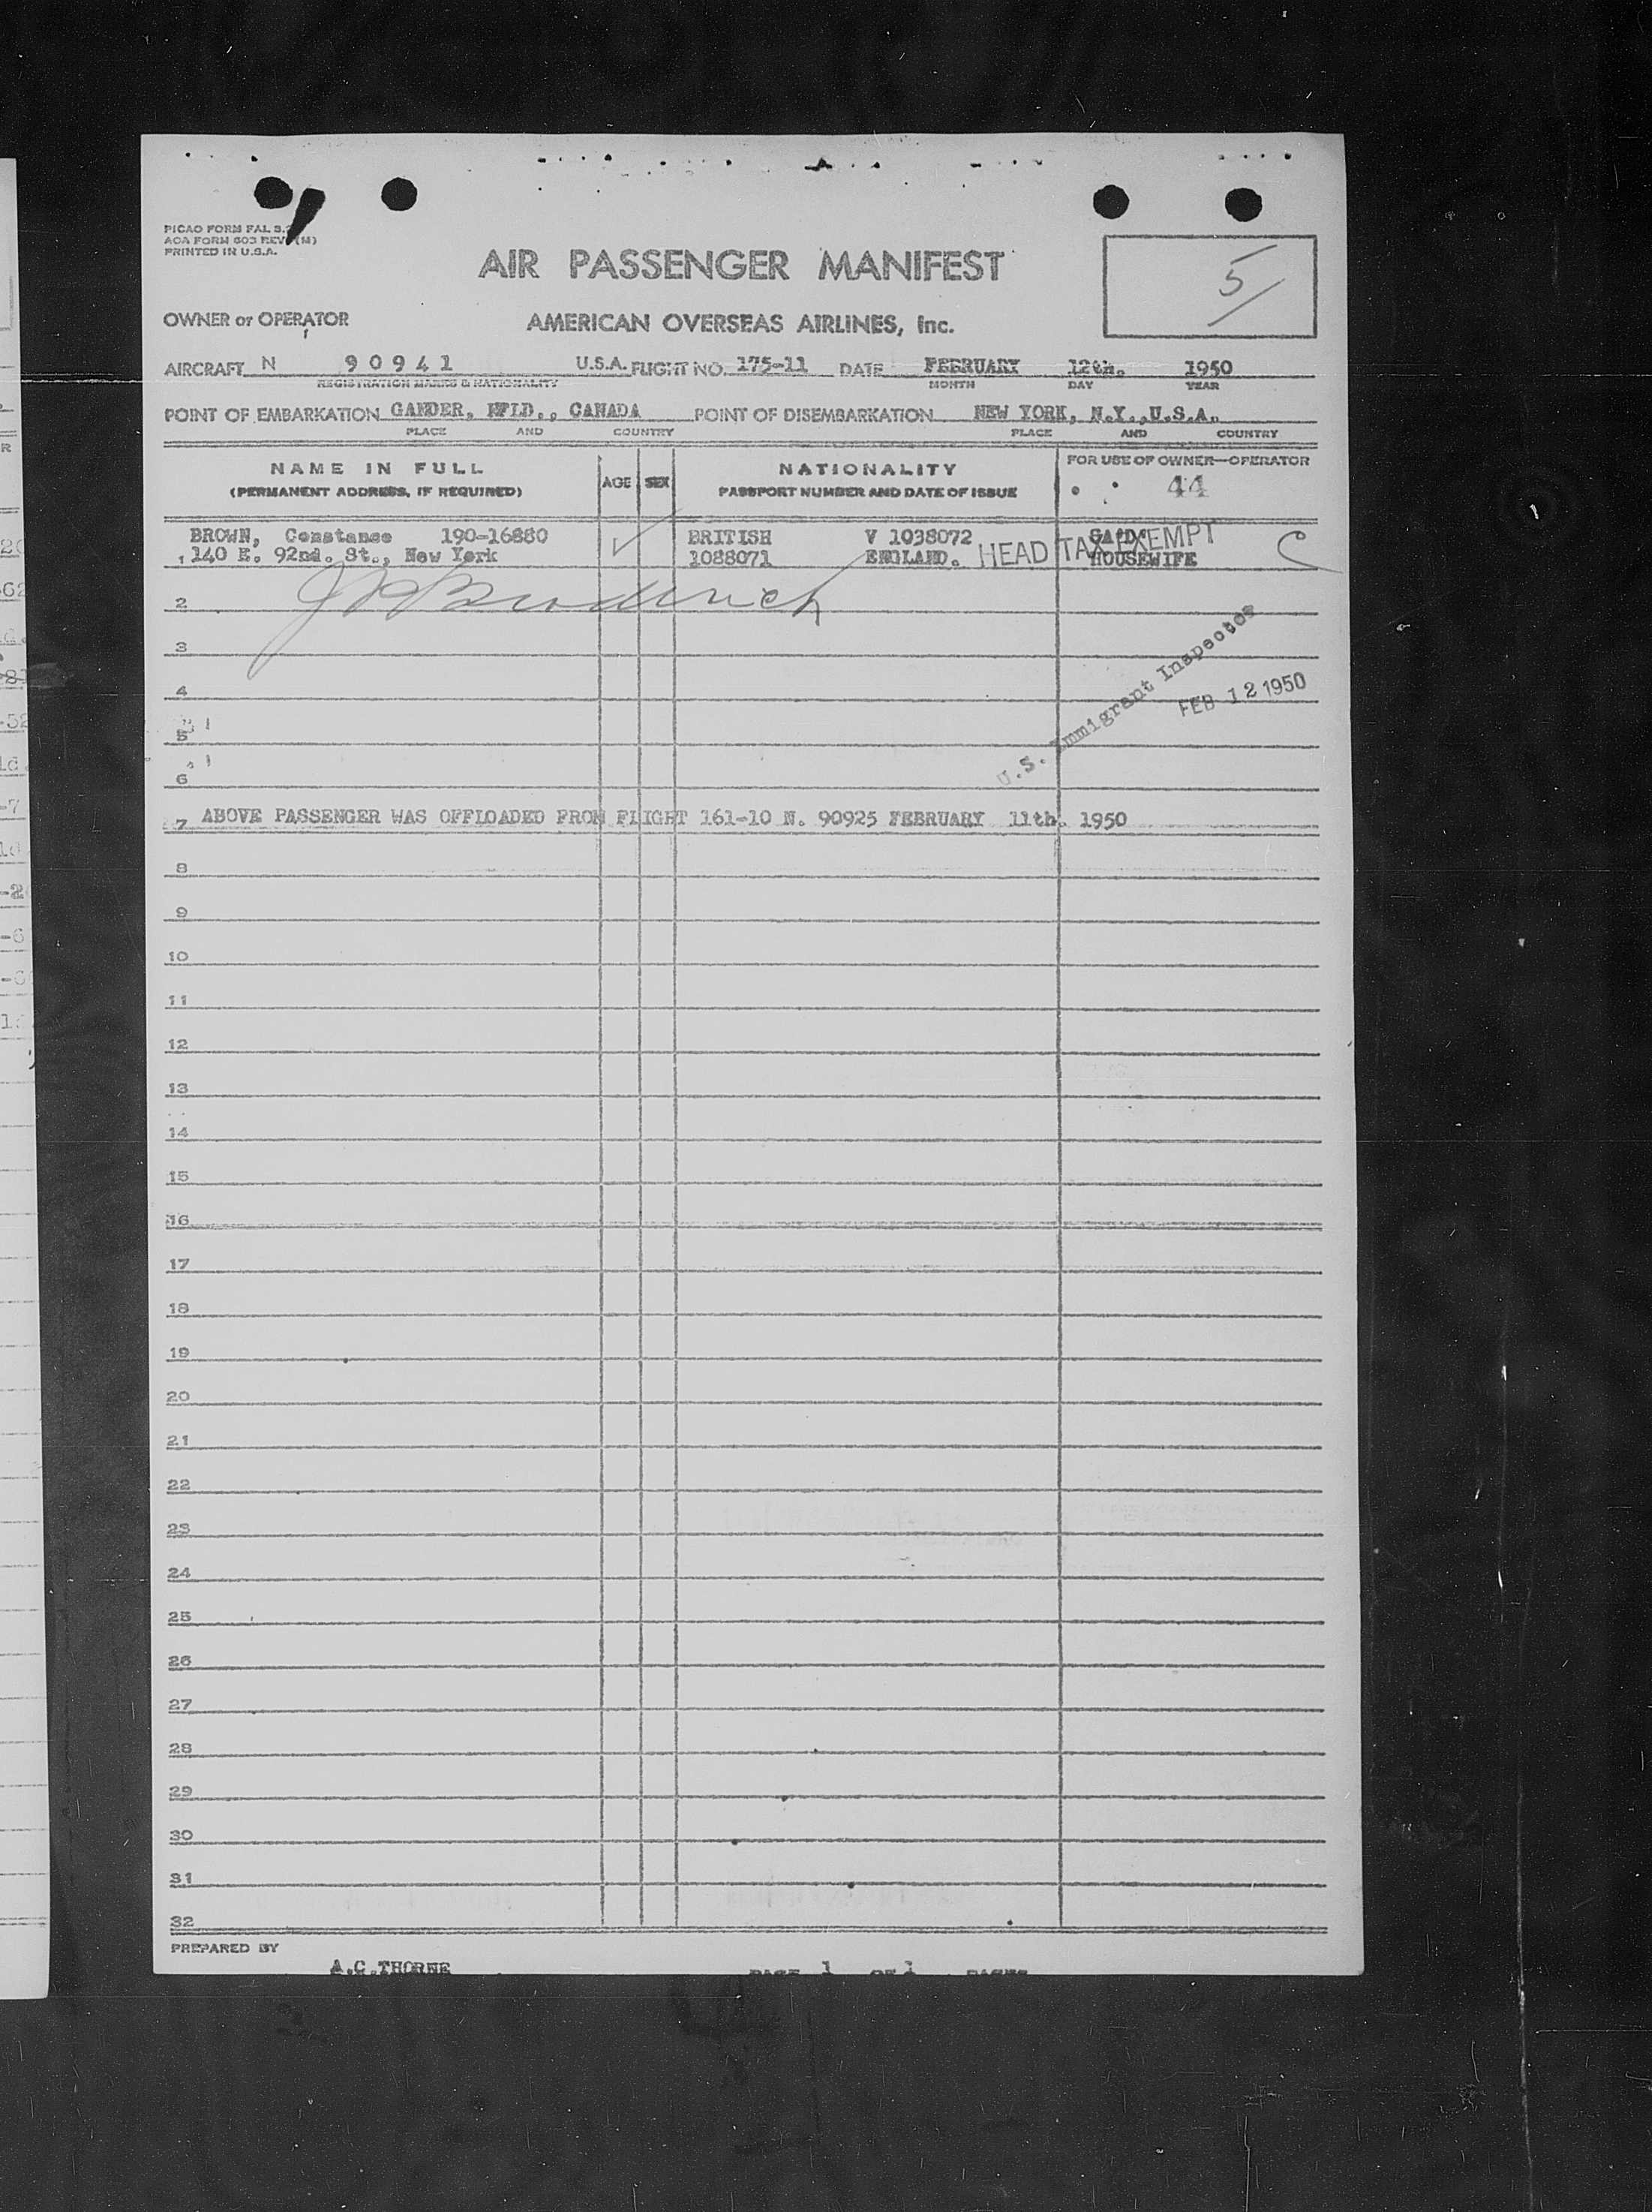 PICAO FORM FAL
AOA FORM 603 REV (M)
PRINTED IN U.S.A.
5
AIR PASSENGER MANIFEST
OWNER or OPERATOR AMERICAN OVERSEAS AIRLINES, Inc.
AIRCRAFT N 90941 U.S.A. FLIGHT NO. 175-11 DATE FEBRUARY 12th. 1950
REGISTRATION MARKS & NATIONALITY MONTH DAY YEAR
POINT OF EMBARKATION GANDER, NFLD., CANADA POINT OF DISEMBARKATION NEW YORK, N.Y.,U.S.A.
PLACE AND COUNTRY PLACE AND COUNTRY
NAME IN FULL AGE SEX NATIONALITY FOR USE OF OWNER—OPERATOR
(PERMANENT ADDRESS, IF REQUIRED) PASSPORT NUMBER AND DATE OF ISSUE 44
BROWN, Constance 190-16880 BRITISH V 1038072
1 140 E. 92nd. St., New York 1088071 ENGLAND. HEAD TAX EXEMPT HOUSEWIFE C
2 Broderick
3
4
U.S. Immigrant Inspector
FEB 12 1950
5
6
7 ABOVE PASSENGER WAS OFFLOADED FROM FLIGHT 161-10 N. 90925 FEBRUARY 11th. 1950
8
9
10
11
12
13
14
15
16
17
18
19
20
21
22
23
24
25
26
27
28
29
30
31
32
PREPARED BY
A.C.THORNE PAGE 1 OF 1 PAGES